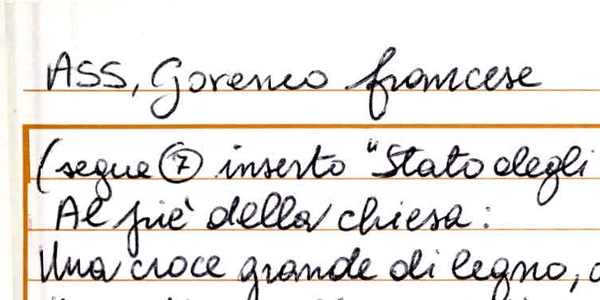 ASS, Governo francese
(segue ⑦ inserto "Stato degli
Al piè della chiesa:
Una croce grande di legno,